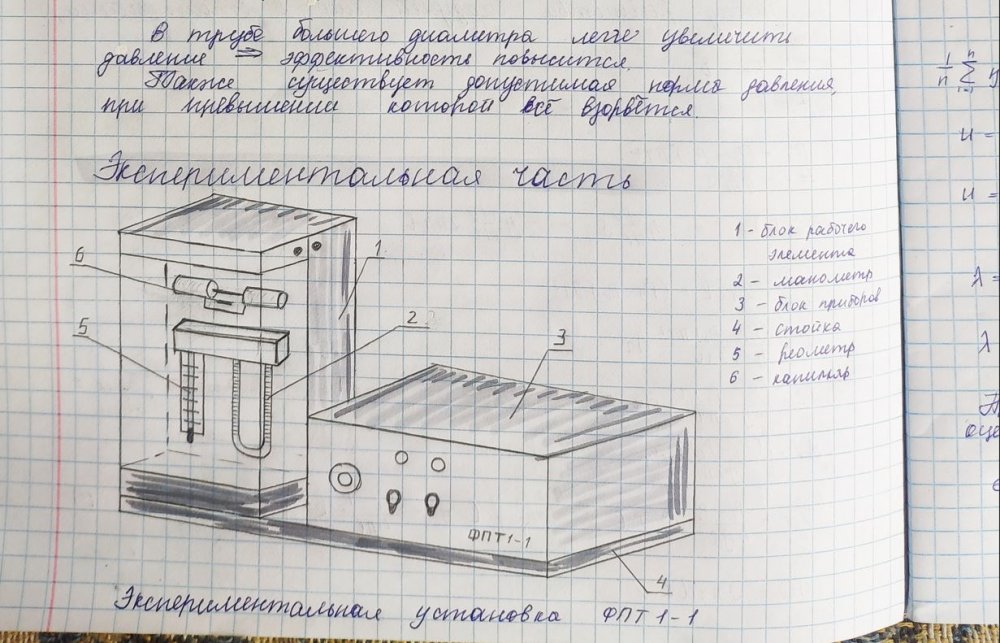 В трубе большего диаметра легче увеличить
давление => эффективность повысится.
Также существует допустимая норма давления,
при превышении которой всё взорвётся.
Экспериментальная часть
1 - блок рабочего
элемента
2 - манометр
3 - блок приборов
4 - стойка
5 - реометр
6 - капилляр
6
1
5
2
3
ФПТ 1-1
4
Экспериментальная установка ФПТ 1-1
1/n ∑ n i=1
u =
u =
λ =
λ
оце